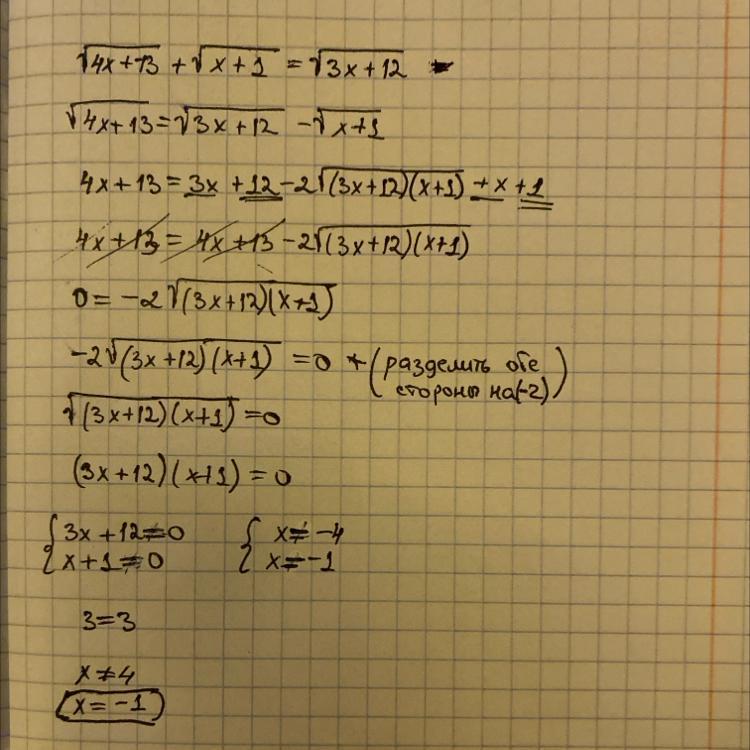 √(4x+13) + √(x+1) = √(3x+12)
√(4x+13) = √(3x+12) - √(x+1)
4x+13 = 3x + 12 - 2√((3x+12)(x+1)) + x + 1
4x+13 = 4x+13 - 2√((3x+12)(x+1))
0 = -2√((3x+12)(x+1))
-2√((3x+12)(x+1)) = 0 (разделить обе
стороны на(-2))
√((3x+12)(x+1)) = 0
(3x+12)(x+1) = 0
{ 3x+12≠0 { x≠-4
x+1≠0 x≠-1
3=3
x≠4
x=-1